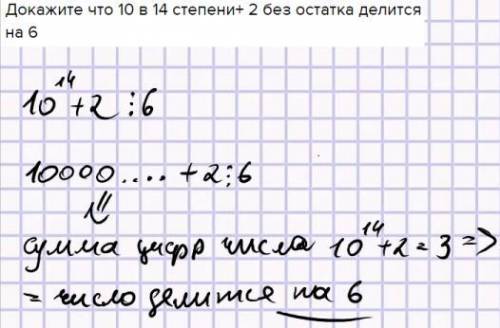 Докажите что 10 в 14 степени+ 2 без остатка делится
на 6
10¹⁴+2 ⋮ 6
10000.... +2 ⋮ 6
сумма цифр числа 10¹⁴+2 = 3 =>
= число делится на 6